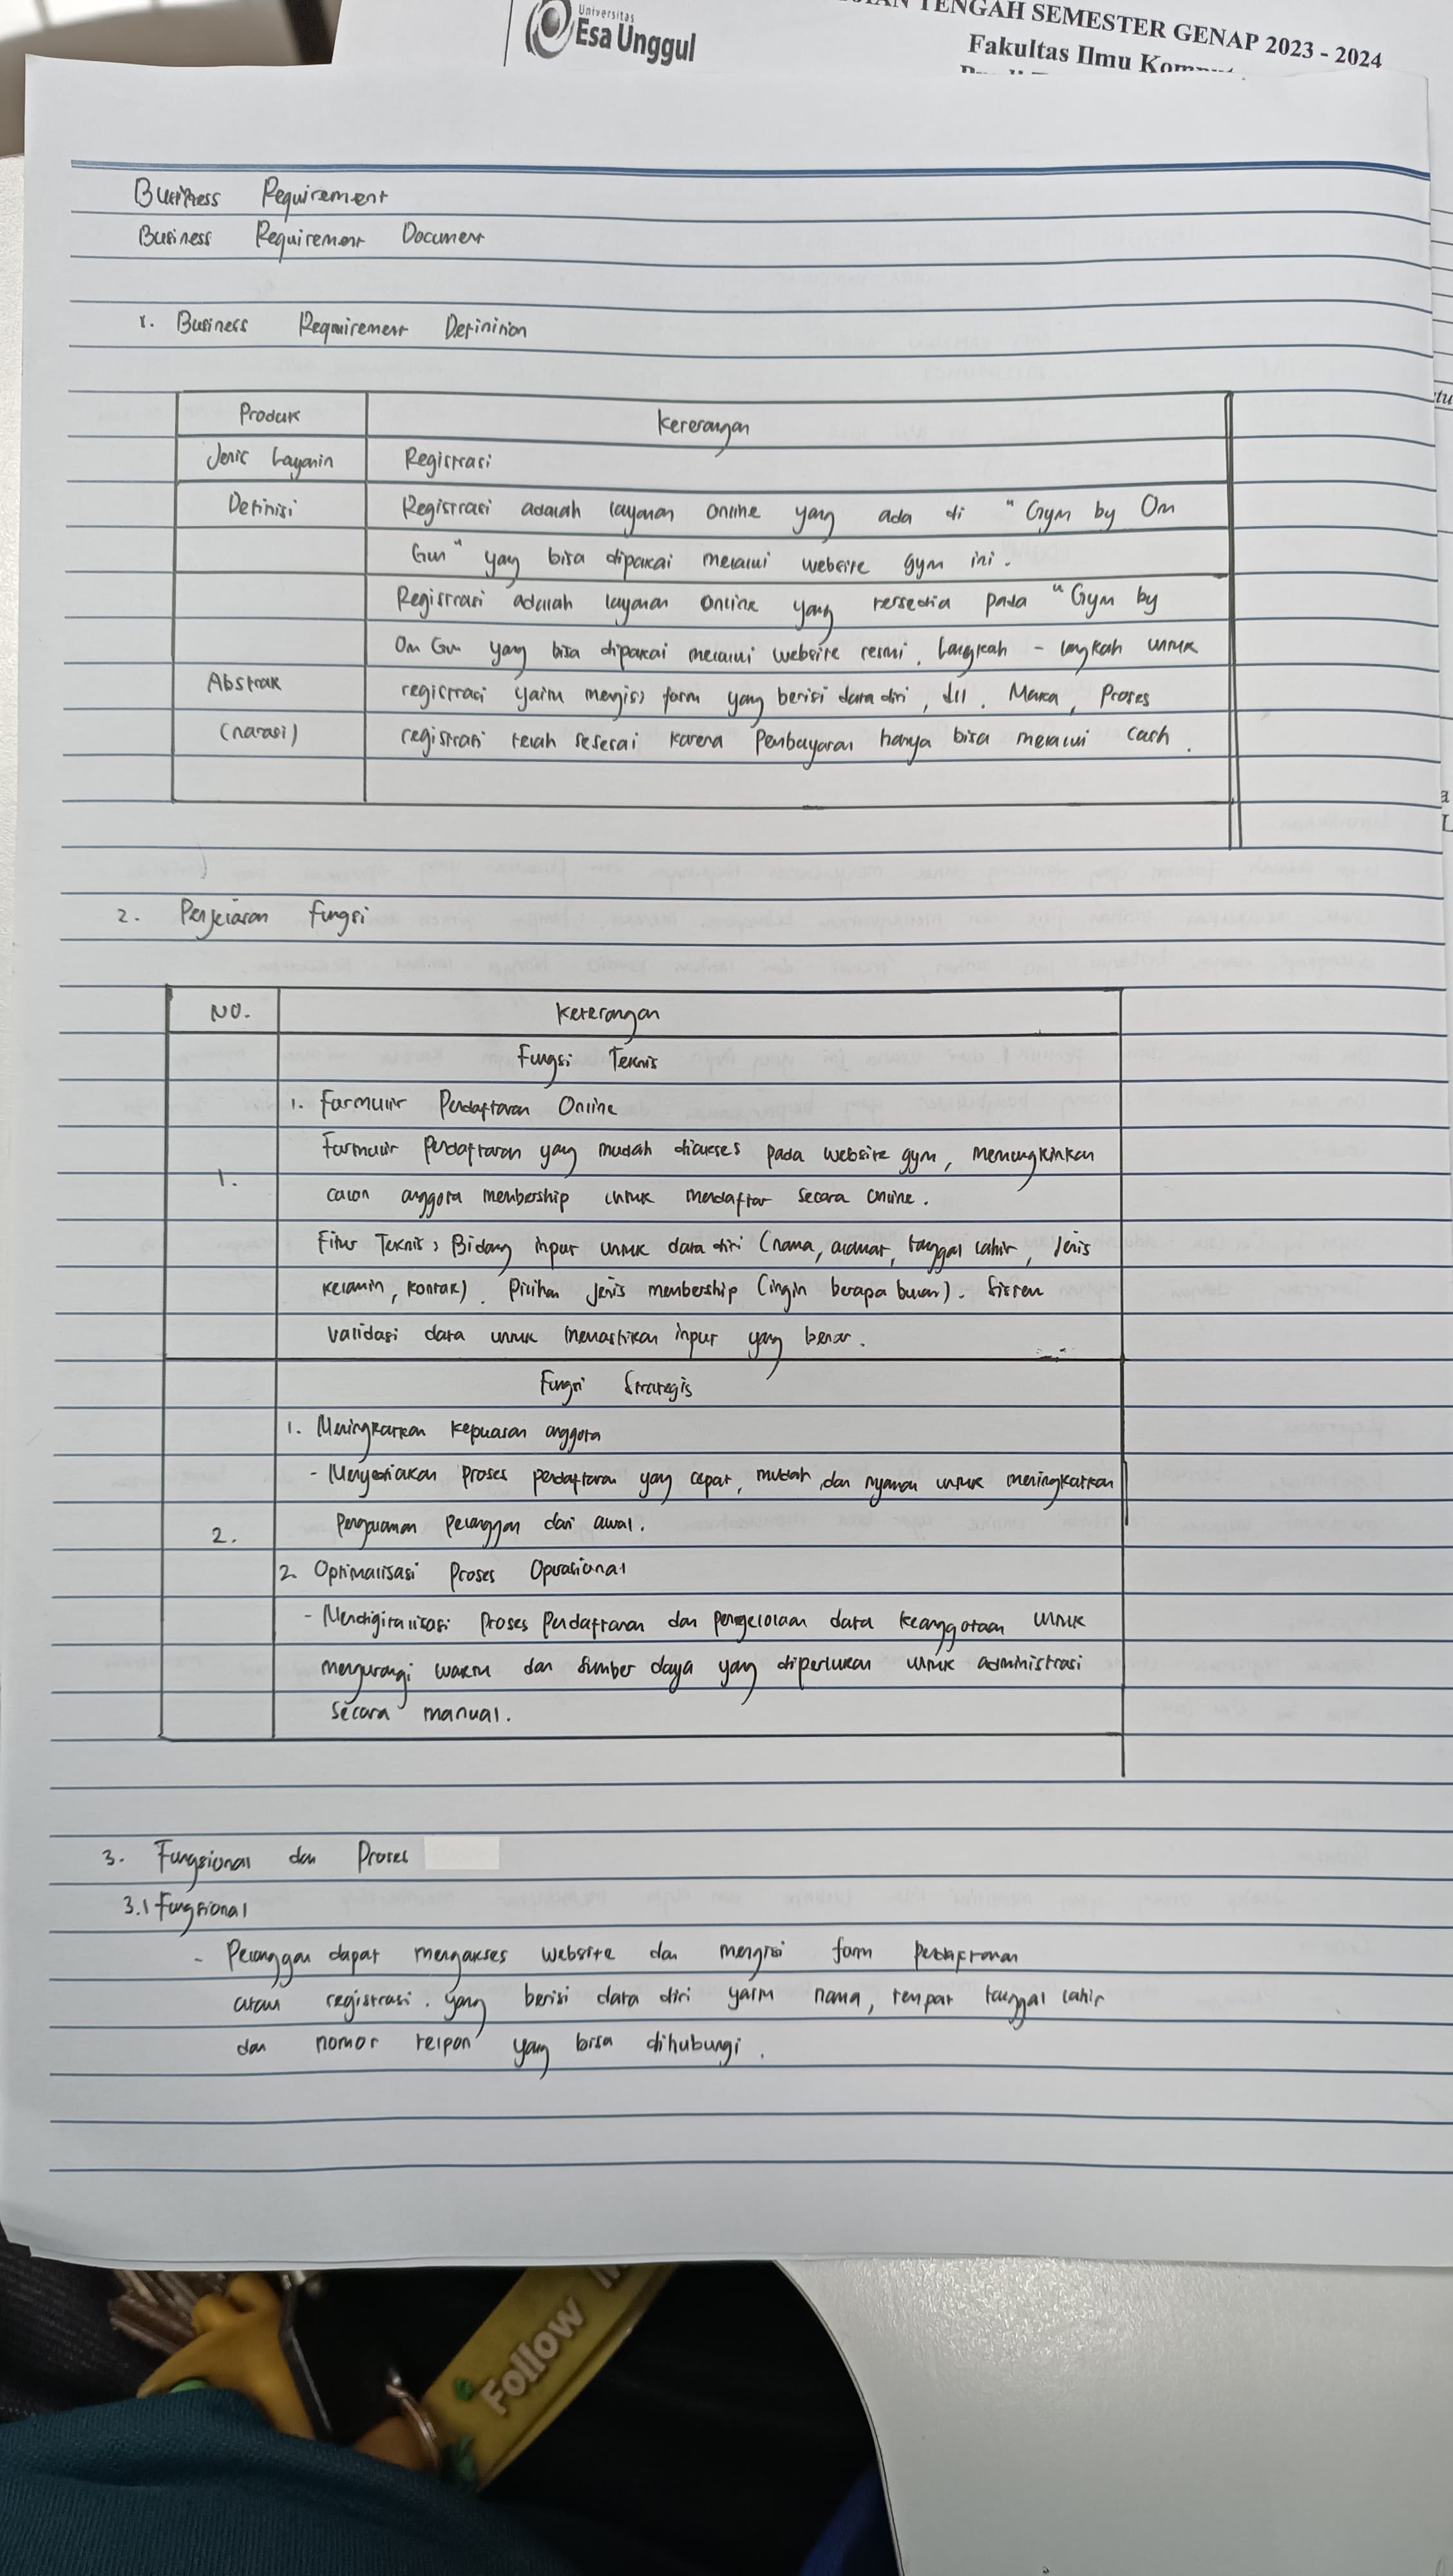 Universitas
Esa Unggul
TENGAH SEMESTER GENAP 2023 - 2024
Fakultas Ilmu
Business Requirement
Business Requirement Document
1. Business Requirement Definition
Produk
Keterangan
Jenis Layanin
Registrasi
Definisi
Registrasi adalah layanan online yang ada di "Gym by Om
Gun" yang bisa dipakai melalui website gym ini.
Registrasi adalah layanan online yang tersedia pada "Gym by
Om Gun yang bisa dipakai melalui website resmi. Langkah - langkah untuk
Abstrak
registrasi yaitu mengisi form yang berisi data diri, dll. Maka, Proses
(narasi)
registrasi telah selesai karena Pembayaran hanya bisa melalui cash.
2. Penjelasan Fungsi
NO.
Keterangan
Fungsi Teknis
1. Formulir Pendaftaran Online
Formulir pendaftaran yang mudah diakses pada website gym, memungkinkan
1.
calon anggota membership untuk mendaftar secara online.
Fitur Teknis: Bidang input untuk data diri (nama, alamat, tanggal lahir, Jenis
kelamin, kontak). Pilihan jenis membership (ingin berapa bulan). Sistem
validasi data untuk memastikan input yang benar.
Fungsi Strategis
1. Meningkatkan kepuasan anggota
- Menyediakan proses pendaftaran yang cepat, mudah, dan nyaman untuk meningkatkan
Pengalaman pelanggan dari awal.
2.
2. Optimalisasi Proses Operasional
- Mendigitalisasi proses pendaftaran dan pengelolaan data keanggotaan untuk
mengurangi waktu dan sumber daya yang diperlukan untuk administrasi
secara manual.
3. Fungsional dan Proses
3.1 Fungsional
- Pelanggan dapat mengakses website dan mengisi form pendaftaran
atau registrasi. yang berisi data diri yaitu nama, tempat tanggal lahir
dan nomor telpon yang bisa dihubungi.
Follow